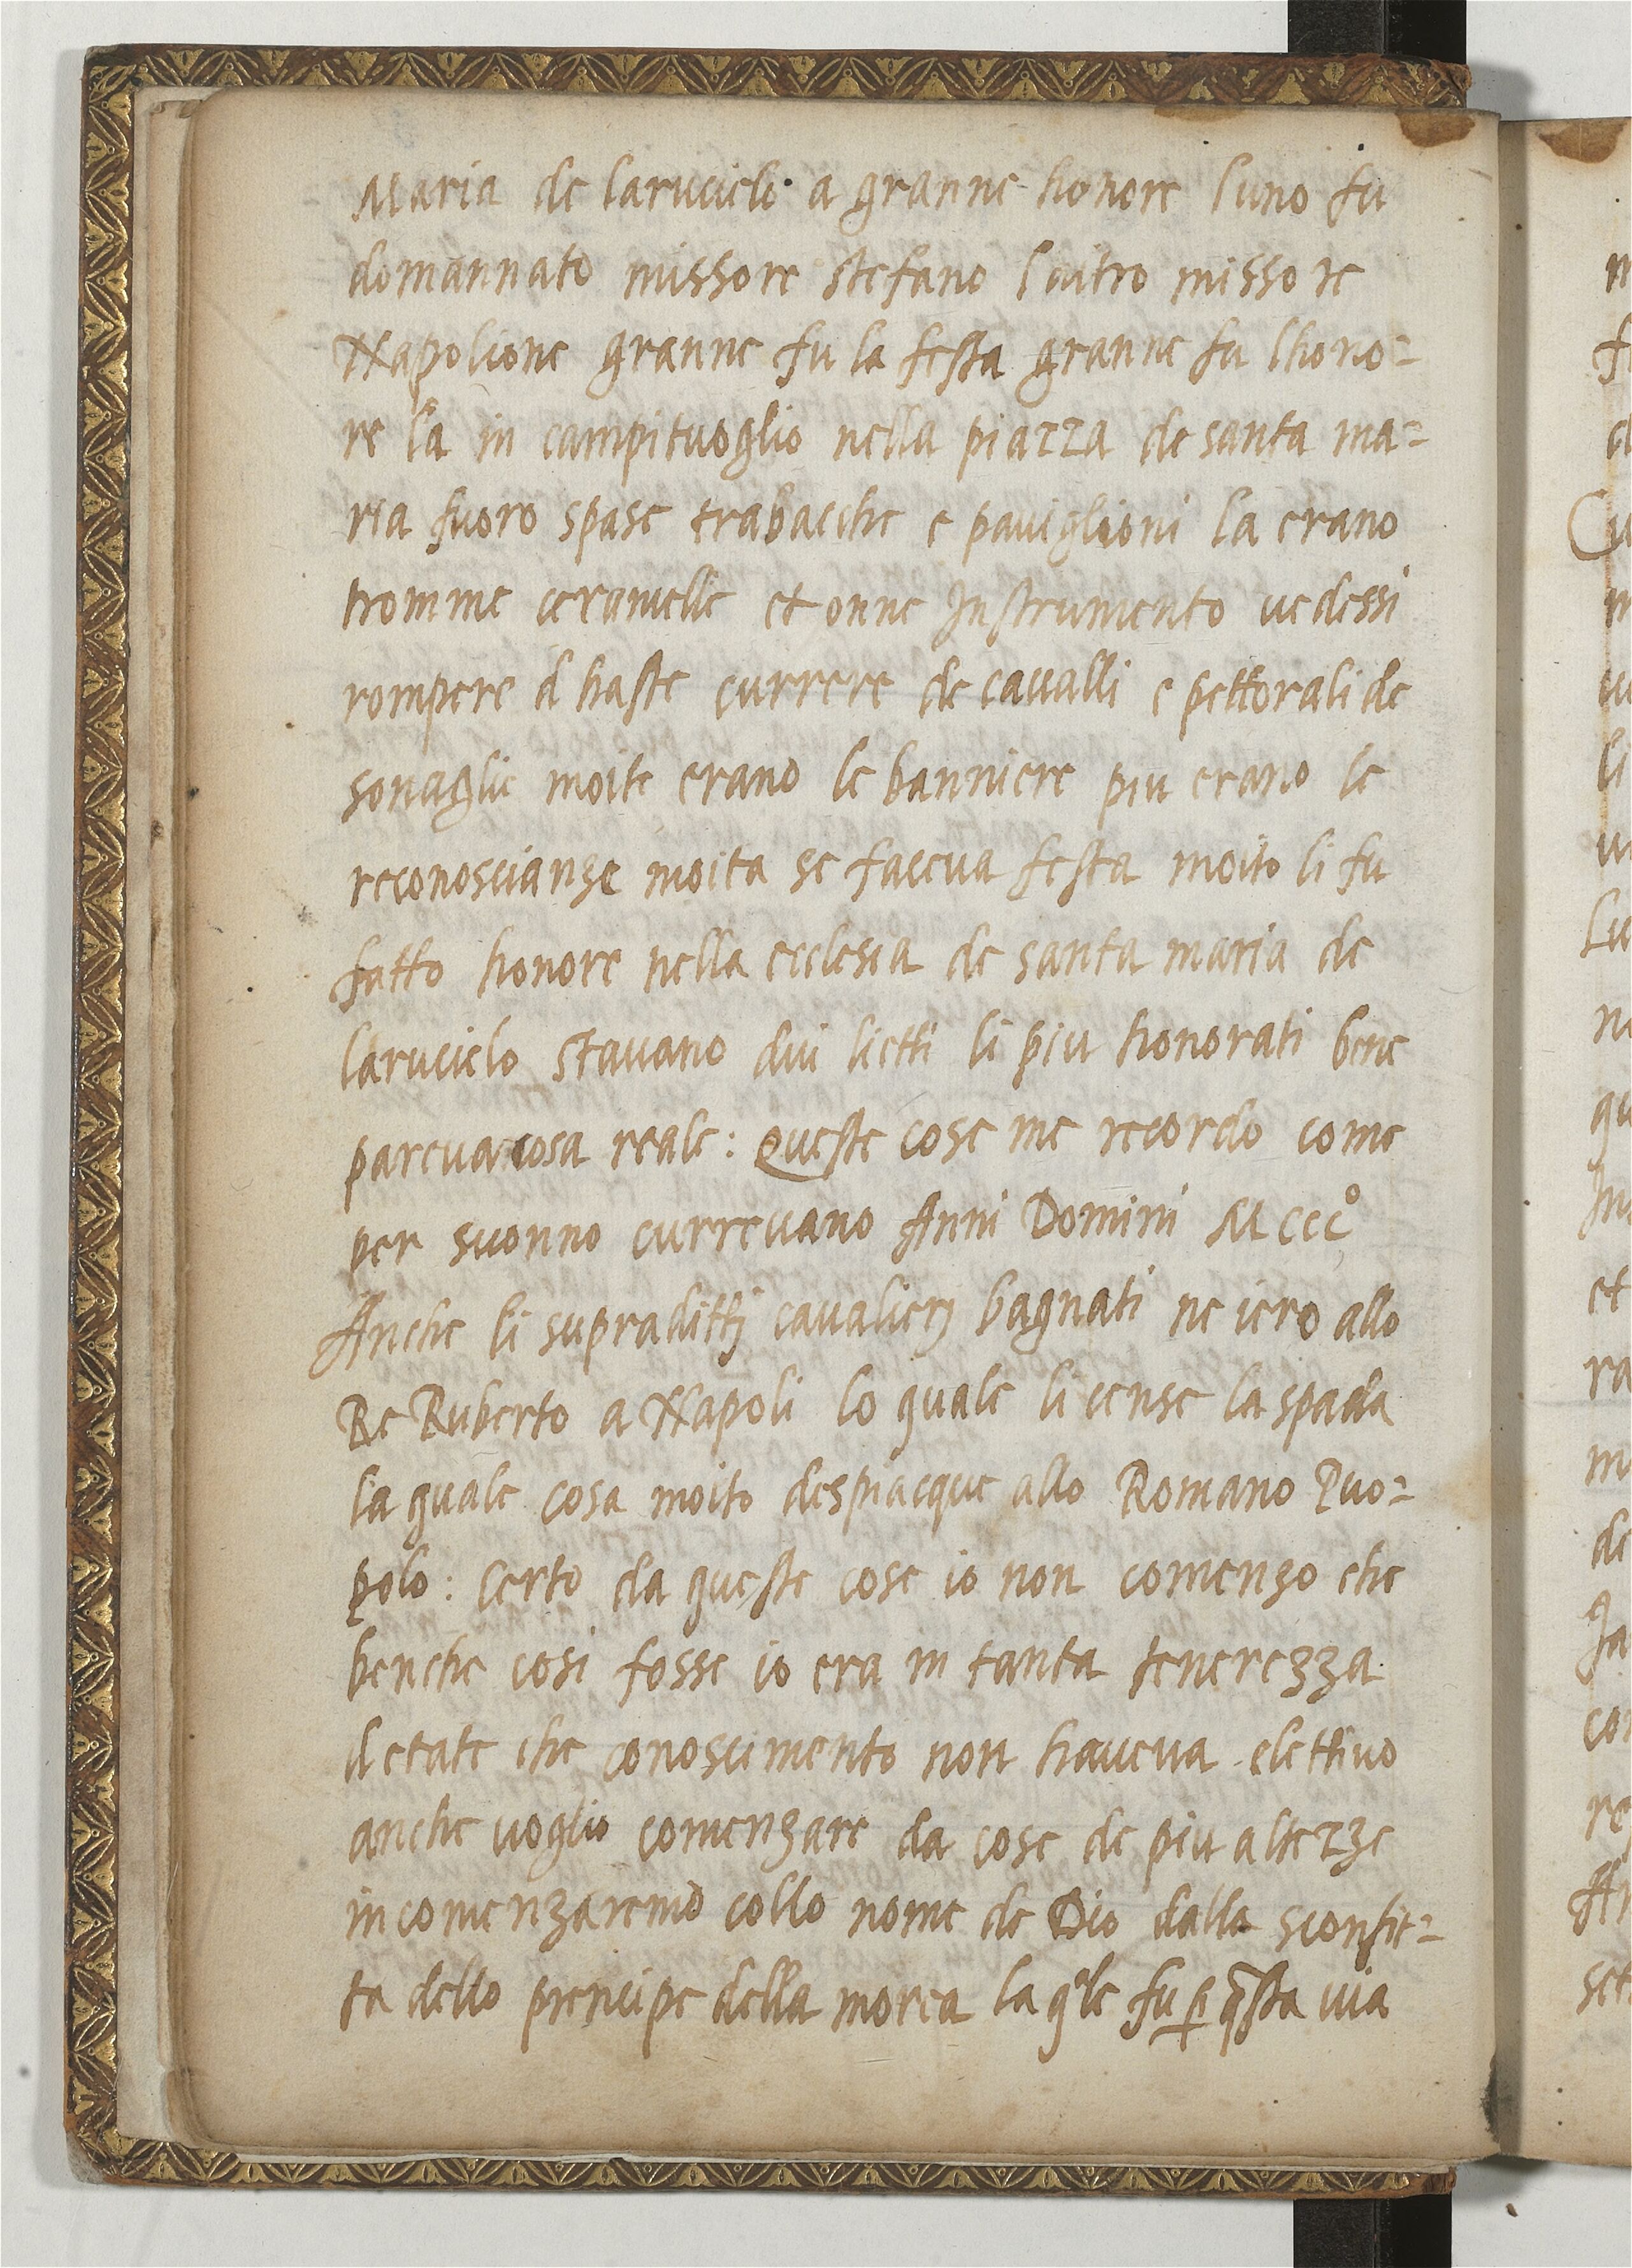 Maria de laruciele a granne honore luno fu
domannato missore stefano laitro missore
Napolione granne fu la festa granne fu lhono=
re la in campituoglio nella piazza de santa ma=
ria fuoro spase trabacche e pauiglioni la erano
tromme ceramelle et onne Instrumento uedessi
rompere d haste currere de caualli e pettorali de
sonaglie moite erano le banniere piu erano le
reconoscianze moita se faceua festa moito li fu
fatto honore nella ecclesia de santa maria de
larucielo stauano dui lietti li piu honorati bene
pareua cosa reale: Queste cose me recordo come
per suonno curreuano Anni Domini Mccc°
Anche li supraditti caualierj bagnati ne iero allo
Re Ruberto a Napoli lo quale li cense la spada
la quale cosa moito despiacque allo Romano Puo=
polo: Certo da queste cose io non comenzo che
benche cosi fosse io era in tanta tenerezza
detate che conoscimento non haueua elettiuo
anche uoglio comenzare da cose de piu altezze
incomenzaremo collo nome de Dio dalla sconfit=
ta dello prencipe della morea la qle fu ꝑ q̃sta uia